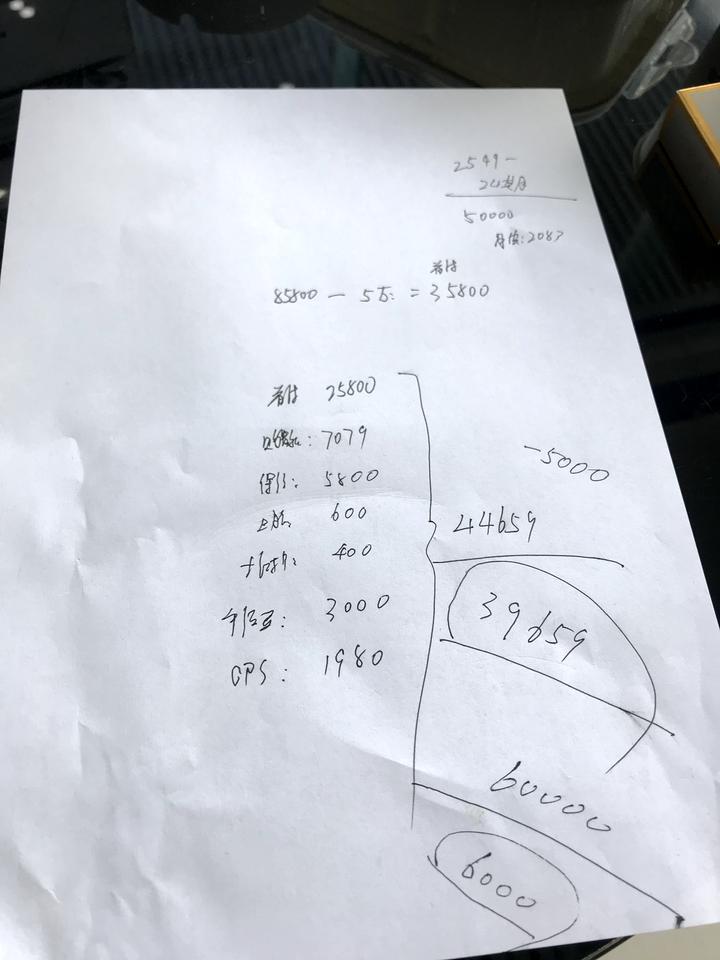 2549-
24期
50000
月供:2083
首付
85800 - 5万 = 35800
首付 25800
购置税: 7079
保险: 5800
上牌 600
400
-5000
44659
3000
39659
GPS: 1980
60000
6000